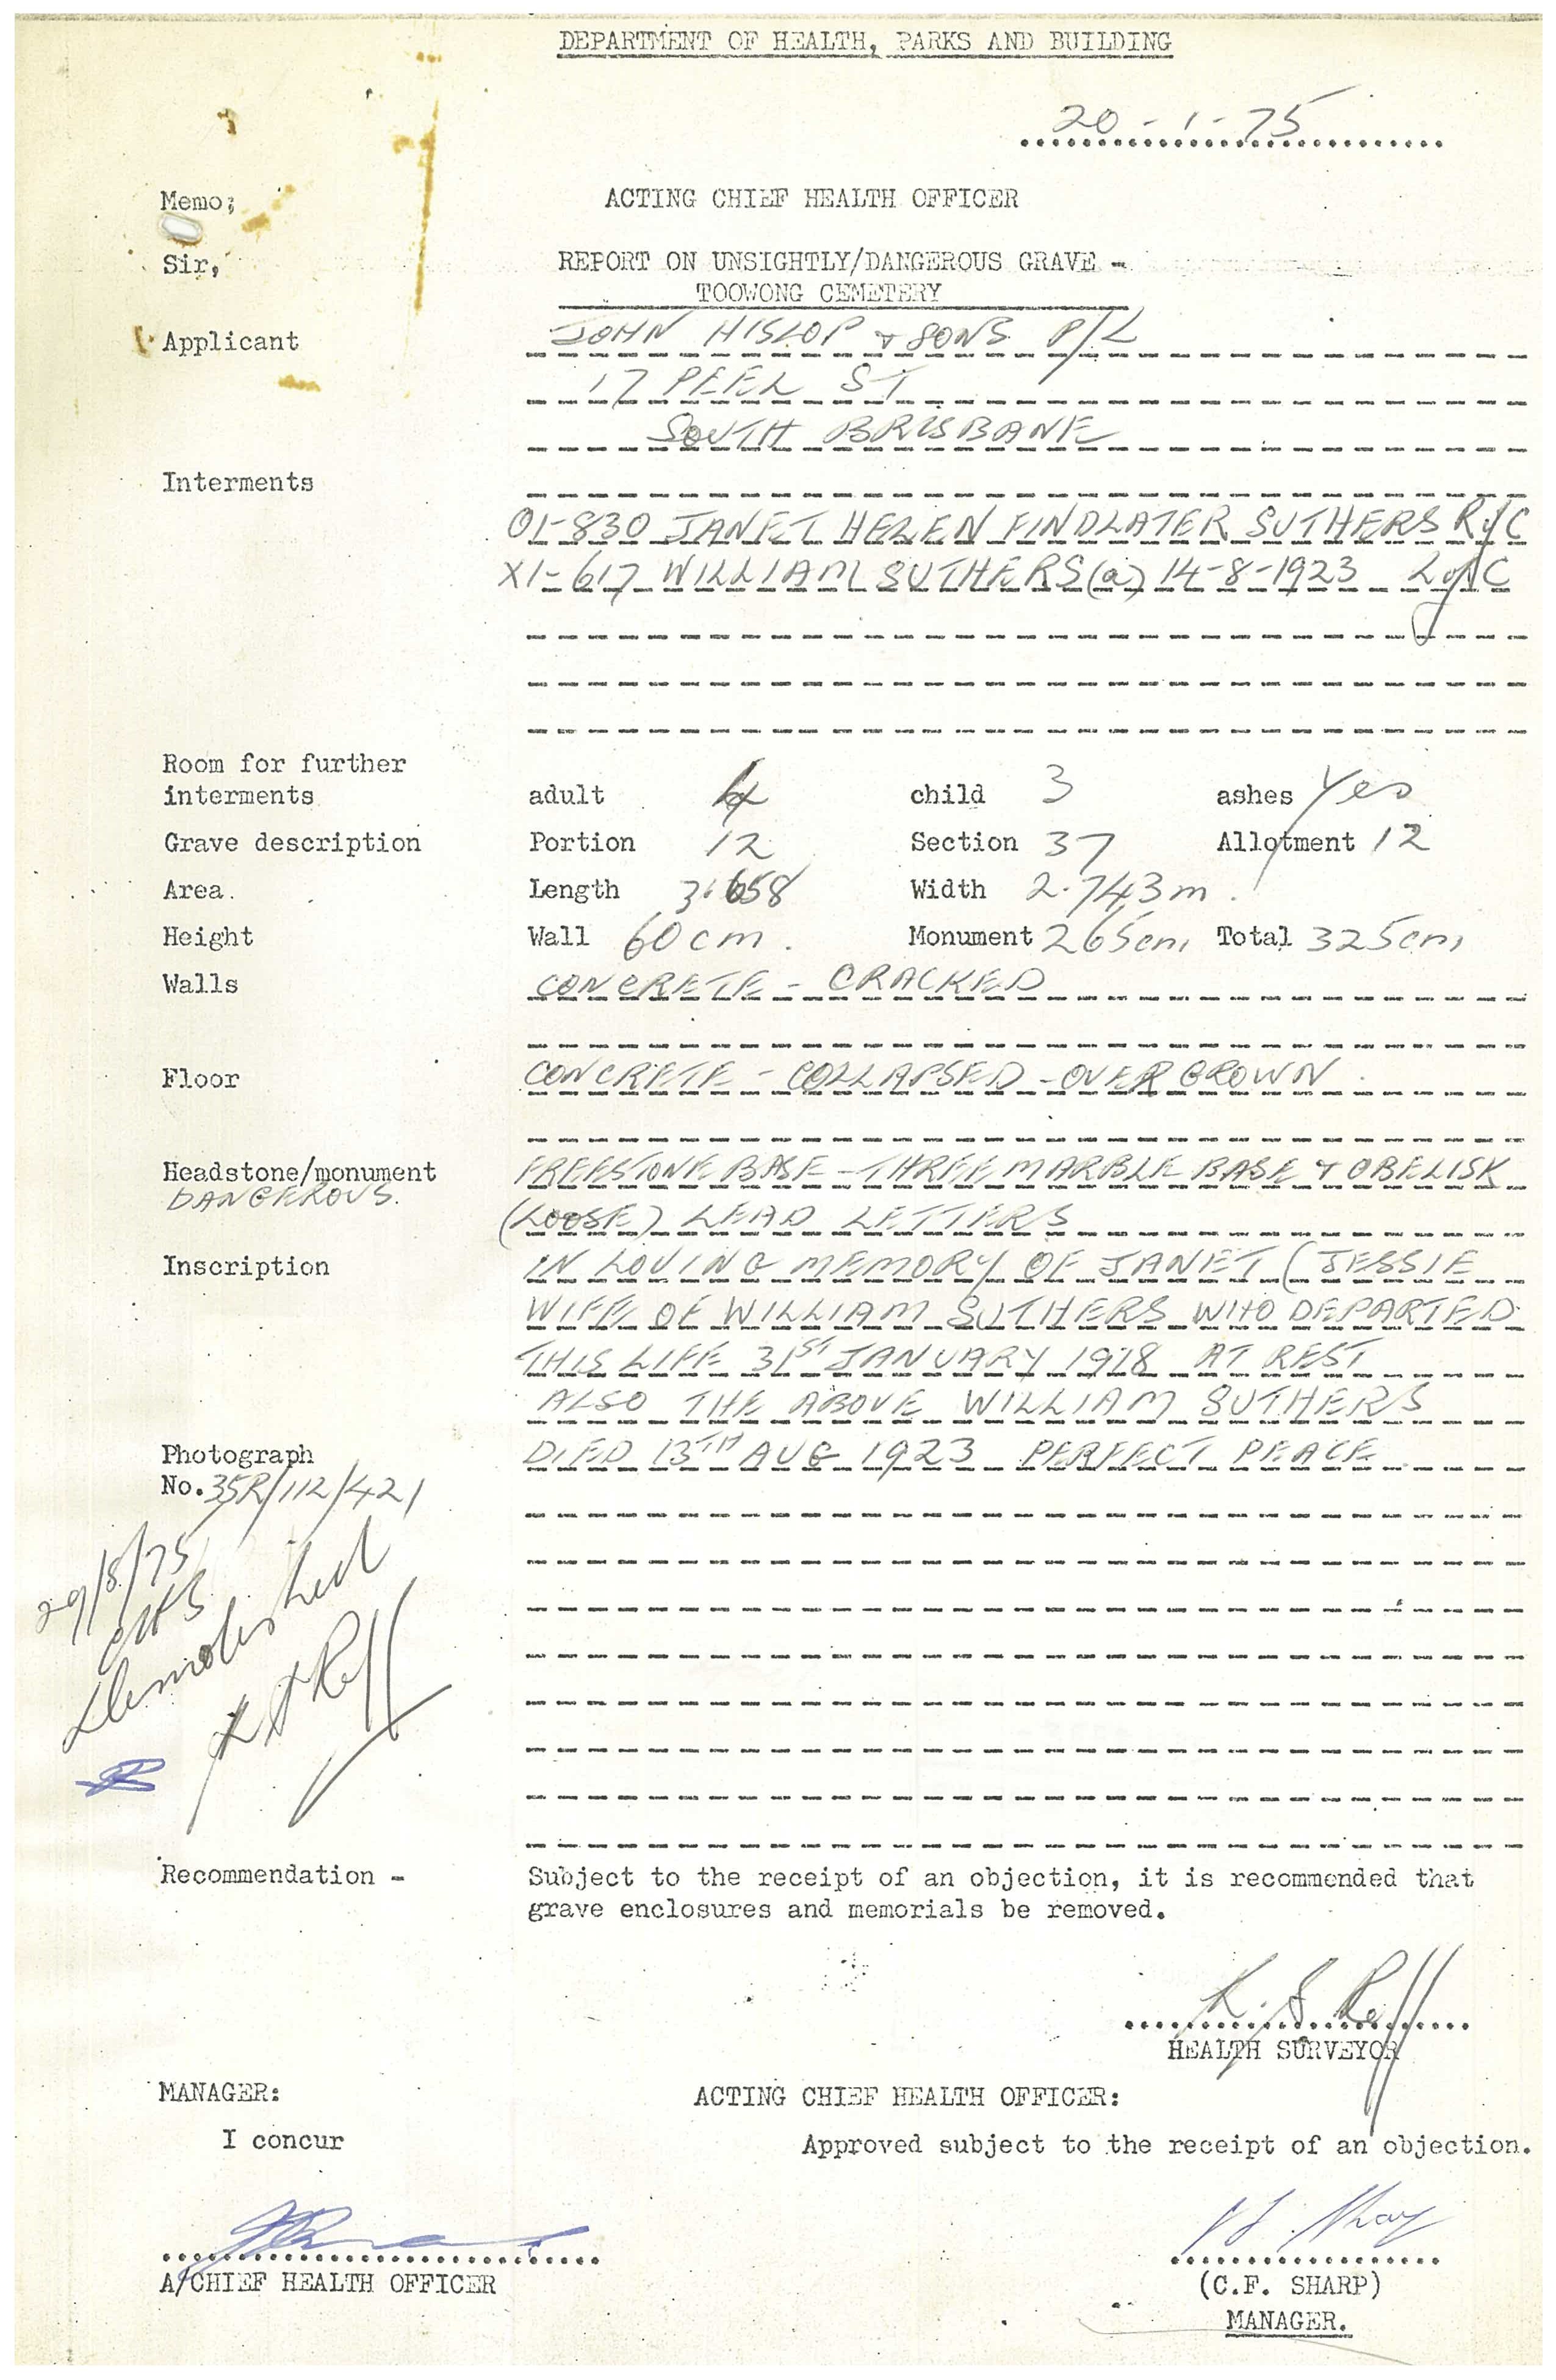 DEPARTMENT OF HEALTH, PARKS AND BUILDING
20-1-75
Memo;
ACTING CHIEF HEALTH OFFICER
Sir,
REPORT ON UNSIGHTLY/DANGEROUS GRAVE -
TOOWONG CEMETERY
Applicant JOHN HISLOP + SONS P/L
17 PEEL ST
SOUTH BRISBANE
Interments
01-830 JANET HELEN FINDLATER SUTHERS R of C
X1-617 WILLIAM SUTHERS (a) 14-8-1923 L of C
Room for further
interments adult child 3 ashes Yes
Grave description Portion 12 Section 37 Allotment 12
Area. Length 3.658 Width 2.743m.
Height Wall 60cm. Monument 265cm Total 325cm
Walls CONCRETE - CRACKED
Floor CONCRETE - COLLAPSED - OVERGROWN.
Headstone/monument FREESTONE BASE - THREE MARBLE BASE + OBELISK
DANGEROUS. (LOOSE) LEAD LETTERS
Inscription IN LOVING MEMORY OF JANET (JESSIE
WIFE OF WILLIAM SUTHERS WHO DEPARTED
THIS LIFE 31ST JANUARY 1918 AT REST
ALSO THE ABOVE WILLIAM SUTHERS
Photograph DIED 13TH AUG 1923 PERFECT PEACE
No. 35R/112/421
29/8/75
Demolished
Recommendation - Subject to the receipt of an objection, it is recommended that
grave enclosures and memorials be removed.
HEALTH SURVEYOR
MANAGER: ACTING CHIEF HEALTH OFFICER:
I concur Approved subject to the receipt of an objection.
A/CHIEF HEALTH OFFICER (C.F. SHARP)
MANAGER.